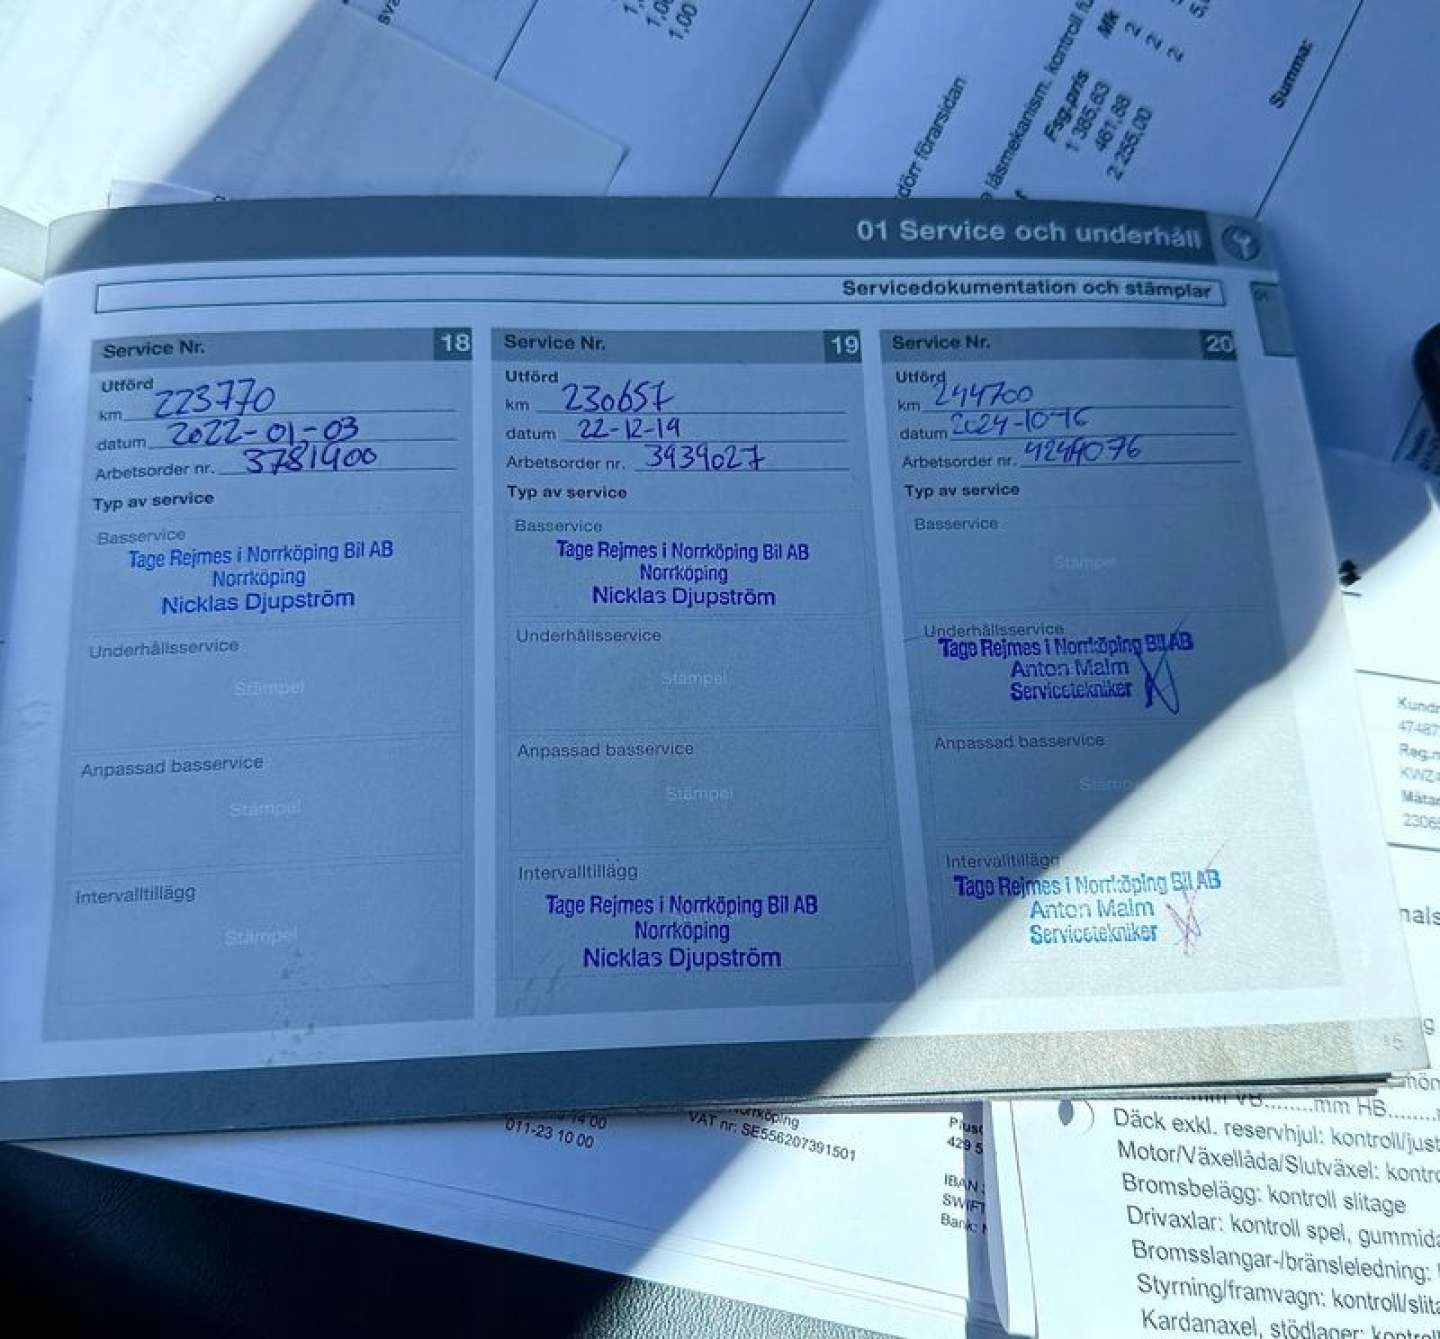 1,00
dörr förarsidan
låsmekanism: kontroll
Fsg.pris
1 385,83
461,88
2 255,00
Mk
2
2
2
Summa:
01 Service och underhåll
Servicedokumentation och stämplar
01
Service Nr. 18
Utförd
km 223770
datum 2022-01-03
Arbetsorder nr. 3781900
Typ av service
Basservice
Tage Rejmes i Norrköping Bil AB
Norrköping
Nicklas Djupström
Underhållsservice
Stämpel
Anpassad basservice
Stämpel
Intervalltillägg
Stämpel
Service Nr. 19
Utförd
km 230657
datum 22-12-19
Arbetsorder nr. 3939027
Typ av service
Basservice
Tage Rejmes i Norrköping Bil AB
Norrköping
Nicklas Djupström
Underhållsservice
Stämpel
Anpassad basservice
Stämpel
Intervalltillägg
Tage Rejmes i Norrköping Bil AB
Norrköping
Nicklas Djupström
Service Nr. 20
Utförd
km 244700
datum 2024-10-16
Arbetsorder nr. 4244076
Typ av service
Basservice
Stämpel
Underhållsservice
Tage Rejmes i Norrköping Bil AB
Anton Malm
Servicetekniker
Anpassad basservice
Stämp
Intervalltillägg
Tage Rejmes i Norrköping Bil AB
Anton Malm
Servicetekniker
15
Kundn
47487
Reg.n
KWZ
Mätar
23065
nals
011-23 10 00
VAT nr: SE556207391501
429 5
IBAN:
SWIFT
Bank:
mm VB........mm HB........
Däck exkl. reservhjul: kontroll/just
Motor/Växellåda/Slutväxel: kontro
Bromsbelägg: kontroll slitage
Drivaxlar: kontroll spel, gummida
Bromsslangar-/bränsleledning:
Styrning/framvagn: kontroll/slita
Kardanaxel, stödlager: kontroll